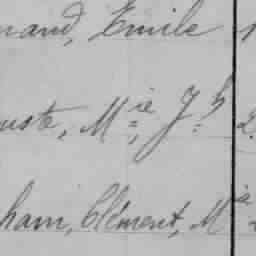 nand, Emile
uste, Mie, Jh 2
ham, Clément, Mie